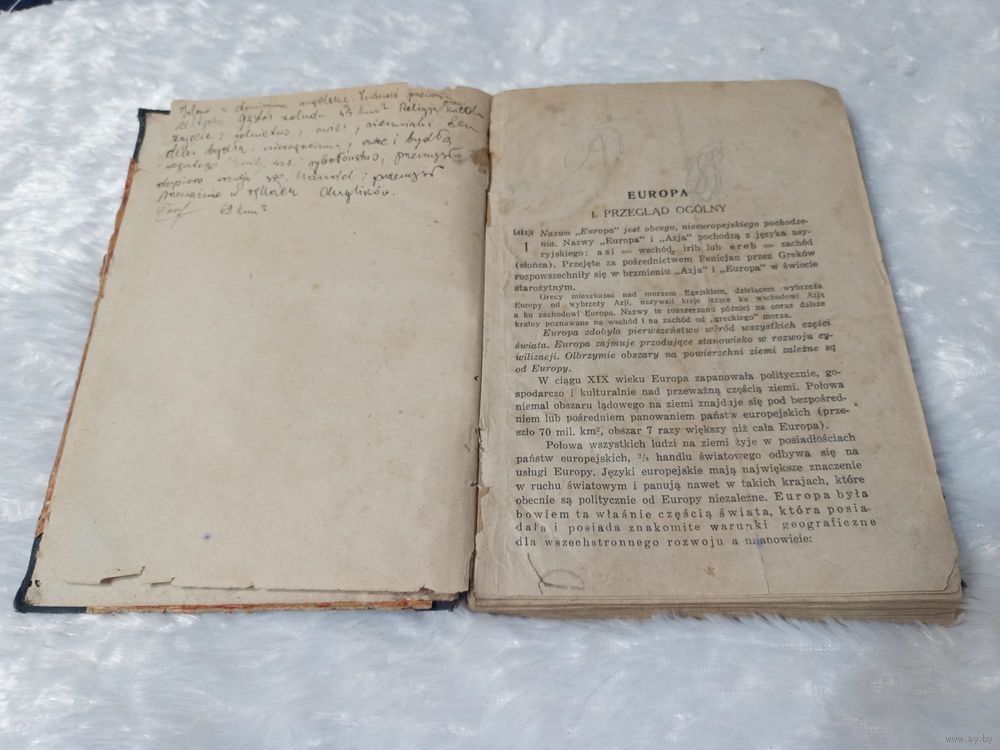 dominium angielskie. Ludność
43 km² Religja
zajęcie: rolnictwo, owies, ziemniaki, len
bydła
rybołóstwo, przemysł
dopiero rozwija się. Handel i przemysł
przeważnie w rękach Anglików.
69 km²
EUROPA
I. PRZEGLĄD OGÓLNY
Lekcja
1
Nazwa „Europa" jest obcego, nieeuropejskiego pochodze-
nia. Nazwy „Europa" i „Azja" pochodzą z języka asy-
ryjskiego: asi = wschód, irib lub ereb = zachód
(słońca). Przejęte za pośrednictwem Fenicjan przez Greków
rozpowszechniły się w brzmieniu „Azja" i „Europa" w świecie
starożytnym.
Grecy mieszkając nad morzem Egejskiem, dzielącem wybrzeża
Europy od wybrzeży Azji, nazywali kraje leżące ku wschodowi Azją
a ku zachodowi Europą. Nazwy te rozszerzano później na coraz dalsze
krainy poznawane na wschód i na zachód od „greckiego" morza.
Europa zdobyła pierwszeństwo wśród wszystkich części
świata. Europa zajmuje przodujące stanowisko w rozwoju cy-
wilizacji. Olbrzymie obszary na powierzchni ziemi zależne są
od Europy.
W ciągu XIX wieku Europa zapanowała politycznie, go-
spodarczo i kulturalnie nad przeważną częścią ziemi. Połowa
niemal obszaru lądowego na ziemi znajduje się pod bezpośred-
niem lub pośredniem panowaniem państw europejskich (prze-
szło 70 mil. km², obszar 7 razy większy niż cała Europa).
Połowa wszystkich ludzi na ziemi żyje w posiadłościach
państw europejskich, ²/₃ handlu światowego odbywa się na
usługi Europy. Języki europejskie mają największe znaczenie
w ruchu światowym i panują nawet w takich krajach, które
obecnie są politycznie od Europy niezależne. Europa była
bowiem ta właśnie częścią świata, która posia-
dała i posiada znakomite warunki geograficzne
dla wszechstronnego rozwoju a mianowicie:
www.ay.by